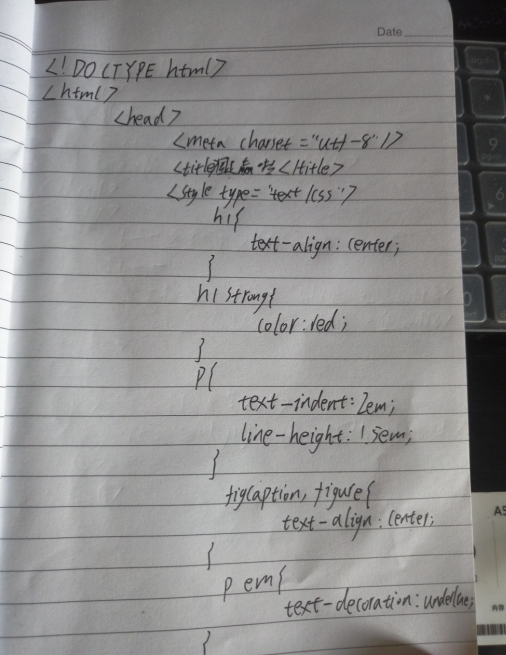 Date
<!DOCTYPE html>
<html>
<head>
<meta charset="utf-8"/>
<title></title>
<style type="text/css">
h1{
text-align: center;
}
h1 strong{
color: red;
}
p{
text-indent: 2em;
line-height: 1.5em;
}
figcaption, figure{
text-align: center;
}
p em{
text-decoration: underline;
}